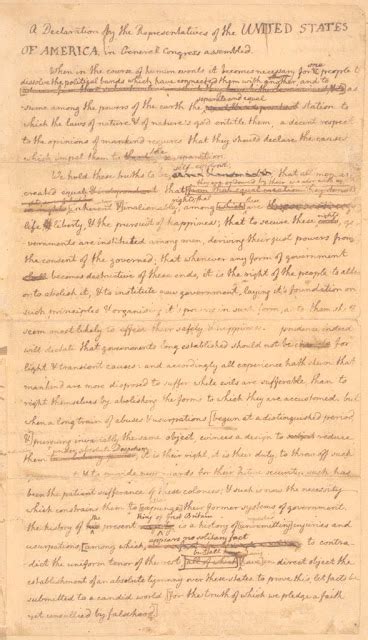 A Declaration by the Representatives of the UNITED STATES
OF AMERICA, in General Congress assembled.
When in the course of human events it becomes necessary for one people to
dissolve the political bands which have connected them with another, and to
as-
separate and equal
sume among the powers of the earth the station to
which the laws of nature & of nature's god entitle them, a decent respect
to the opinions of mankind requires that they should declare the causes
which impel them to the separation.
self-evident
We hold these truths to be that all men are
created equal that
rights, that
inherent & inalienable, among are
life, & liberty, & the pursuit of happiness; that to secure these go-
vernments are instituted among men, deriving their just powers from
the consent of the governed; that whenever any form of government
becomes destructive of these ends, it is the right of the people to alter
or to abolish it, & to institute new government, laying it's foundation on
such principles & organising it's powers in such form, as to them shall
seem most likely to effect their safety & happiness. prudence indeed
will dictate that governments long established should not be for
light & transient causes: and accordingly all experience hath shewn that
mankind are more disposed to suffer while evils are sufferable, than to
right themselves by abolishing the forms to which they are accustomed. but
when a long train of abuses & usurpations [begun at a distinguished period
& pursuing invariably the same object, evinces a design to reduce
under absolute Despotism
them it is their right, it is their duty, to throw off such
& to provide new guards for their future security. such has
been the patient sufferance of these colonies; & such is now the necessity
which constrains them to their former systems of government.
the history of present is a history of injuries and
usurpations among which,
appears no solitary fact
to contra-
dict the uniform tenor of the rest in direct object the
establishment of an absolute tyranny over these states. to prove this, let facts be
submitted to a candid world [for the truth of which we pledge a faith
yet unsullied by falsehood]